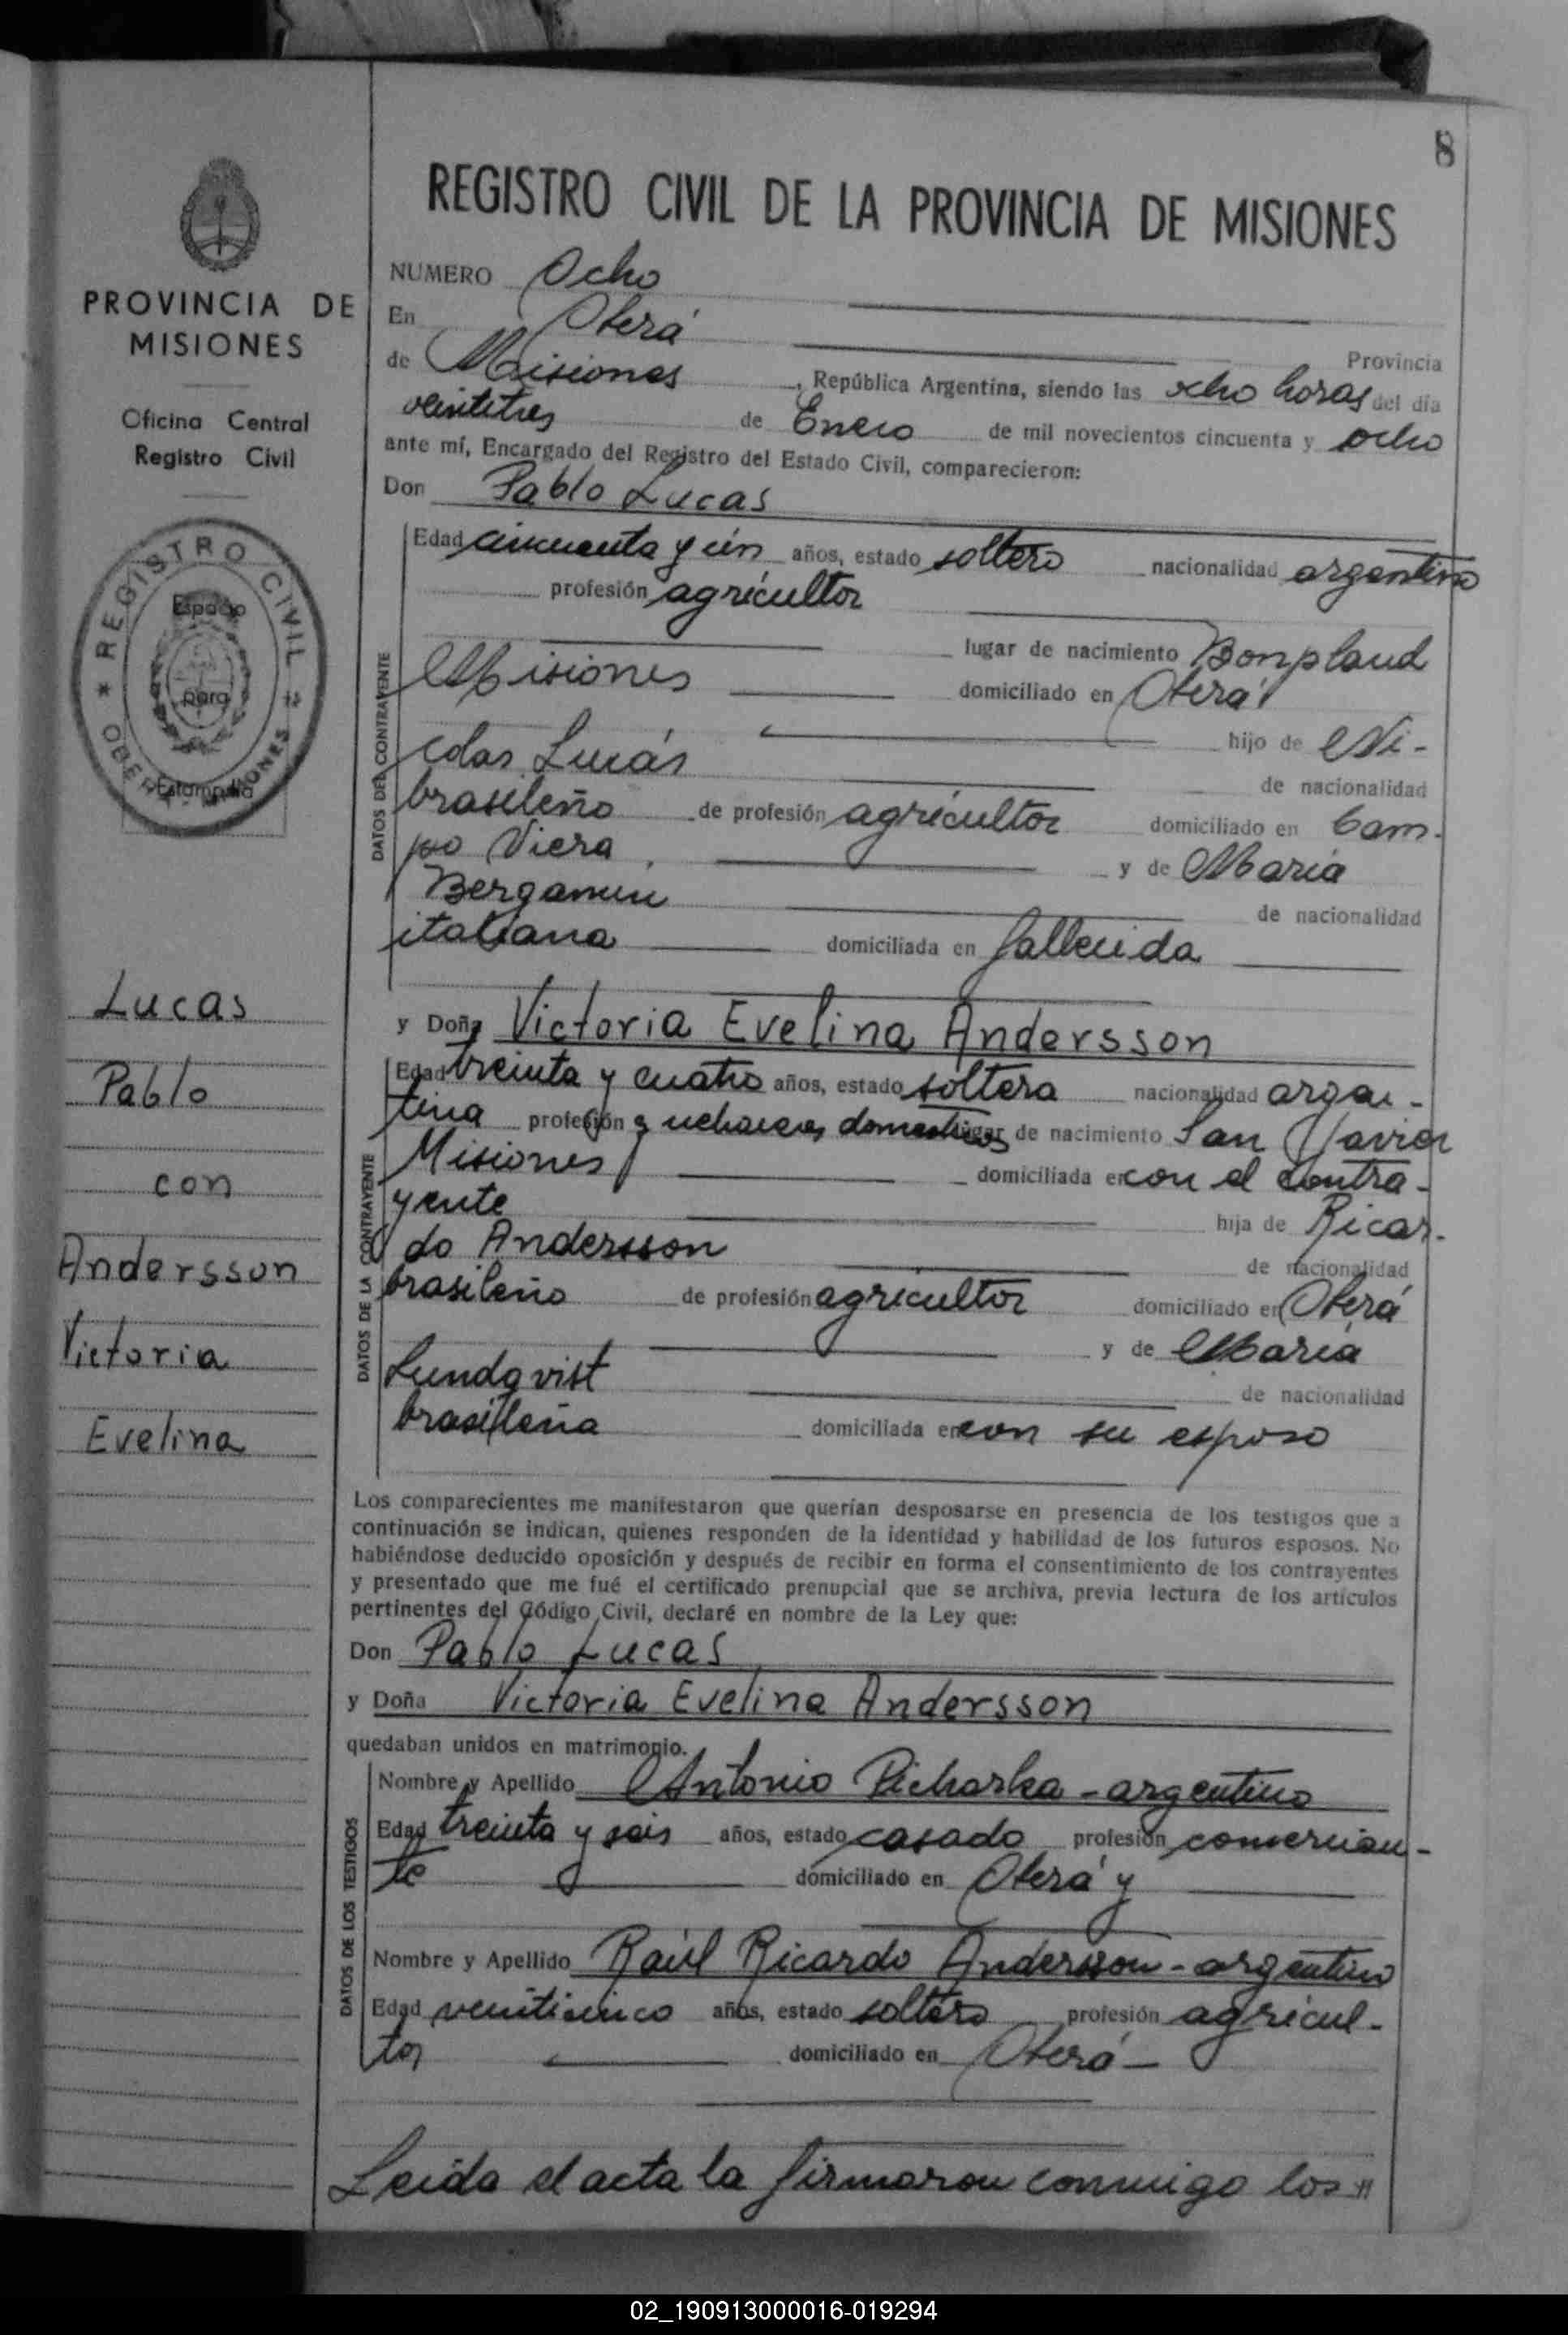 8
REGISTRO CIVIL DE LA PROVINCIA DE MISIONES
PROVINCIA DE
MISIONES
Oficina Central
Registro Civil
REGISTRO CIVIL
OBERA - MISIONES
Espacio
para
Estampilla
Lucas
Pablo
con
Andersson
Victoria
Evelina
NUMERO Ocho
En Oberá
Provincia
de Misiones, República Argentina, siendo las ocho horas del día
veintitres de Enero de mil novecientos cincuenta y ocho
ante mí, Encargado del Registro del Estado Civil, comparecieron:
Don Pablo Lucas
DATOS DEL CONTRAYENTE
Edad cincuenta y ún años, estado soltero nacionalidad argentino
profesión agricultor
lugar de nacimiento Bonpland
Misiones domiciliado en Oberá
hijo de Ni-
colas Lucás
de nacionalidad
brasileño de profesión agricultor domiciliado en Cam-
po Viera, y de Maria
Bergamin
de nacionalidad
italiana domiciliada en fallecida
y Doña Victoria Evelina Andersson
DATOS DE LA CONTRAYENTE
Edad treinta y cuatro años, estado soltera nacionalidad argen-
tina profesión quehaceres domesticos lugar de nacimiento San Javier
Misiones domiciliada en con el contra-
yente hija de Ricar-
do Andersson
de nacionalidad
brasileño de profesión agricultor domiciliado en Oberá
y de Maria
Lundqvist
de nacionalidad
brasileña domiciliada en con su esposo
Los comparecientes me manifestaron que querían desposarse en presencia de los testigos que a
continuación se indican, quienes responden de la identidad y habilidad de los futuros esposos. No
habiéndose deducido oposición y después de recibir en forma el consentimiento de los contrayentes
y presentado que me fué el certificado prenupcial que se archiva, previa lectura de los artículos
pertinentes del Código Civil, declaré en nombre de la Ley que:
Don Pablo Lucas
y Doña Victoria Evelina Andersson
quedaban unidos en matrimonio.
DATOS DE LOS TESTIGOS
Nombre y Apellido Antonio Picharka - argentino
Edad treinta y seis años, estado casado profesión comercian-
te domiciliado en Oberá y
Nombre y Apellido Raúl Ricardo Andersson - argentino
Edad venticinco años, estado soltero profesión agricul-
tor domiciliado en Oberá -
Leida el acta la firmaron conmigo los "
02_190913000016-019294